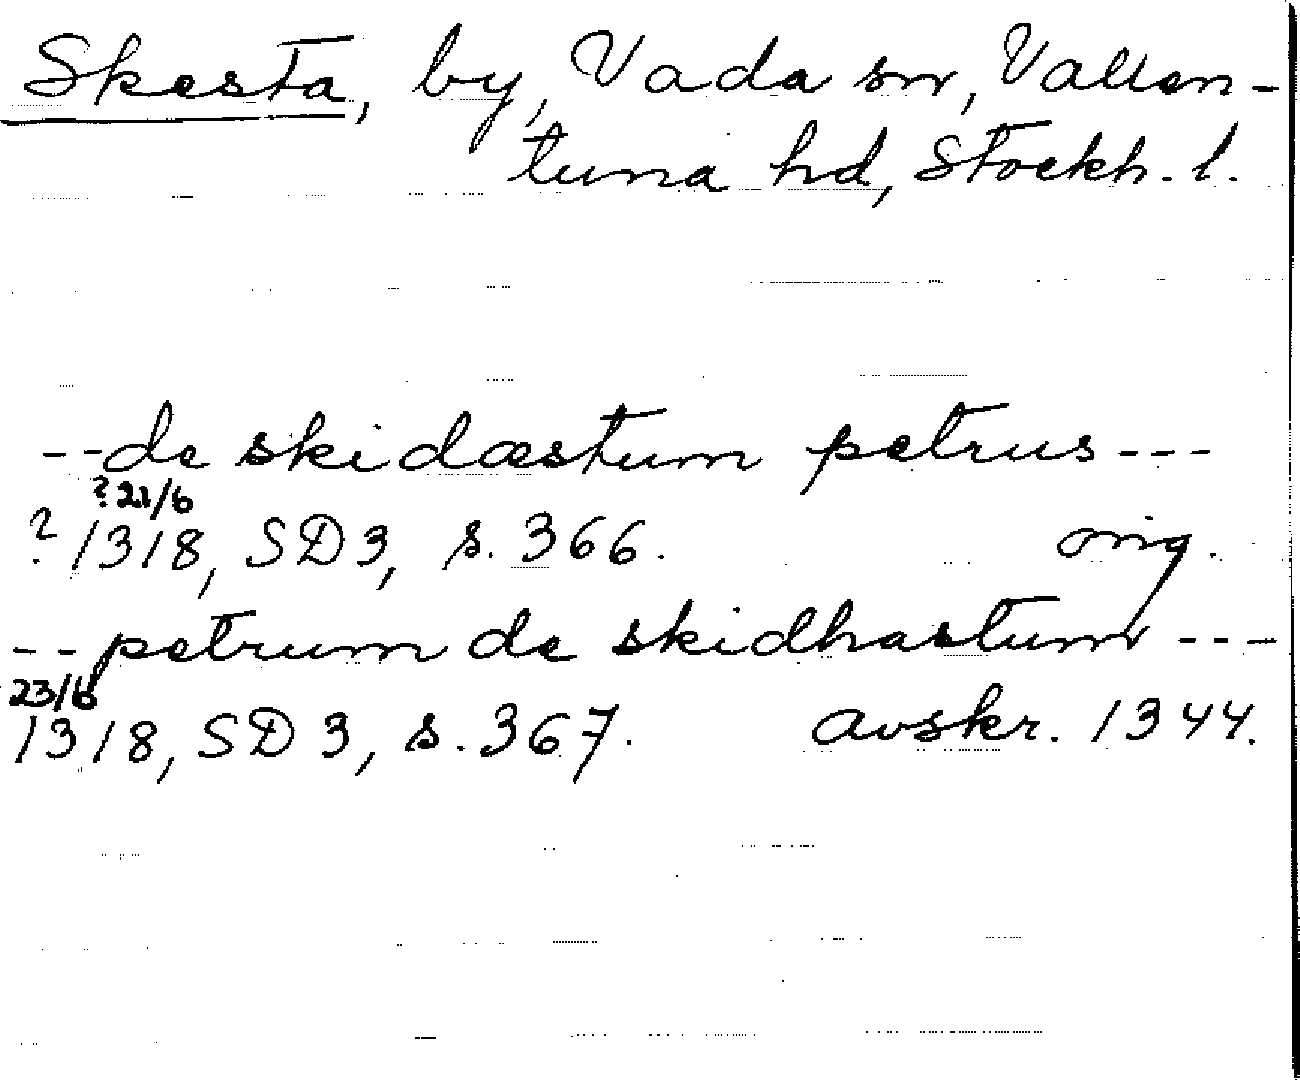 Skesta, by, Vada sn, Vallen-
tuna hd, Stockh. l.
--de skidæstum petrus---
? 21/6
? 1318, SD 3, s. 366. orig.
--petrum de skidhastum---
23/6
1318, SD 3, s. 367. avskr. 1344.